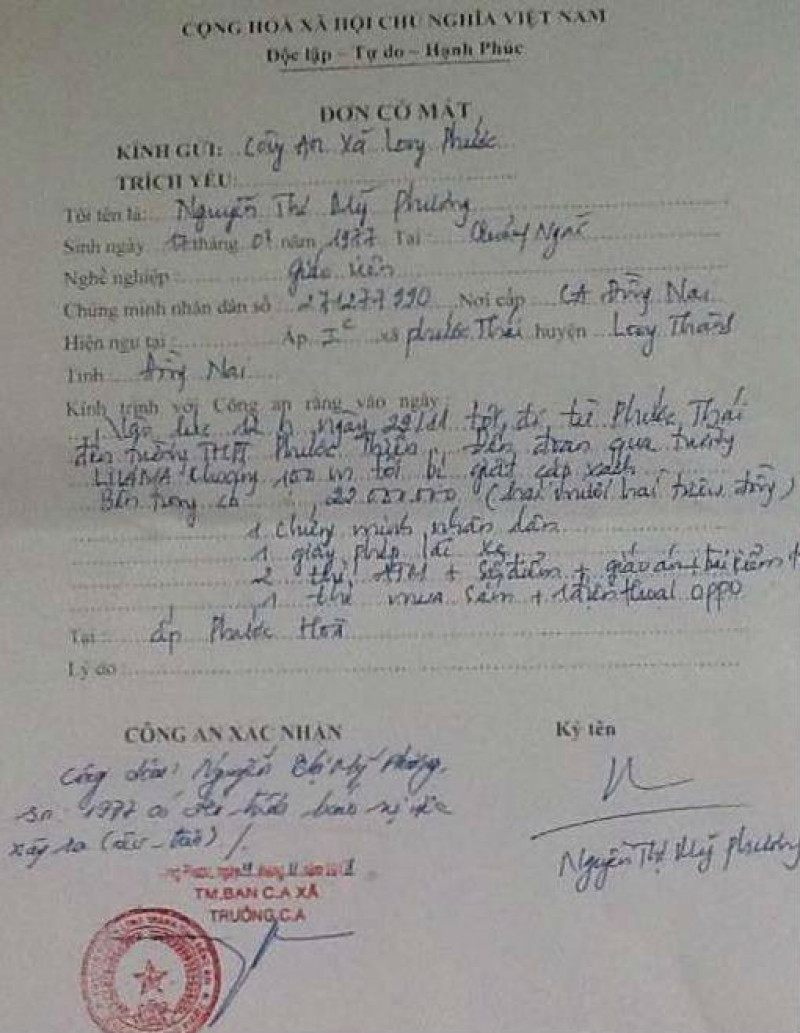 CỘNG HOÀ XÃ HỘI CHỦ NGHĨA VIỆT NAM
Độc lập – Tự do – Hạnh Phúc
ĐƠN CỚ MẤT
KÍNH GỬI: Công An Xã Long Phước
TRÍCH YẾU:
Tôi tên là: Nguyễn Thị Mỹ Phương
Sinh ngày 17 tháng 07 năm 1977 Tại: Quảng Ngãi
Nghề nghiệp: giáo viên
Chứng minh nhân dân số 271277990 Nơi cấp CA Đồng Nai
Hiện ngụ tại: Ấp IC xã Phước Thái huyện Long Thành
Tỉnh Đồng Nai
Kính trình với Công an rằng vào ngày:
lúc 12 h ngày 29/11 tôi đi từ Phước Thái
đến trường THPT Phước Thiền, đến đoạn qua trường
LILAMA khoảng 100 m tôi bị giật cặp xách
Bên trong có: 22.000.000 (hai mươi hai triệu đồng)
1 chứng minh nhân dân
1 giấy phép lái xe
2 thẻ ATM + sổ điểm + giáo án + bài kiểm t
1 thẻ mua sắm + 1 điện thoại OPPO
Tại: ấp Phước Hoà
Lý do:
CÔNG AN XÁC NHẬN
Ký tên
Công dân: Nguyễn Thị Mỹ Phương,
sn: 1977 có báo sự
xảy ra
Nguyễn Thị Mỹ Phương
TM.BAN C.A XÃ
TRƯỞNG C.A